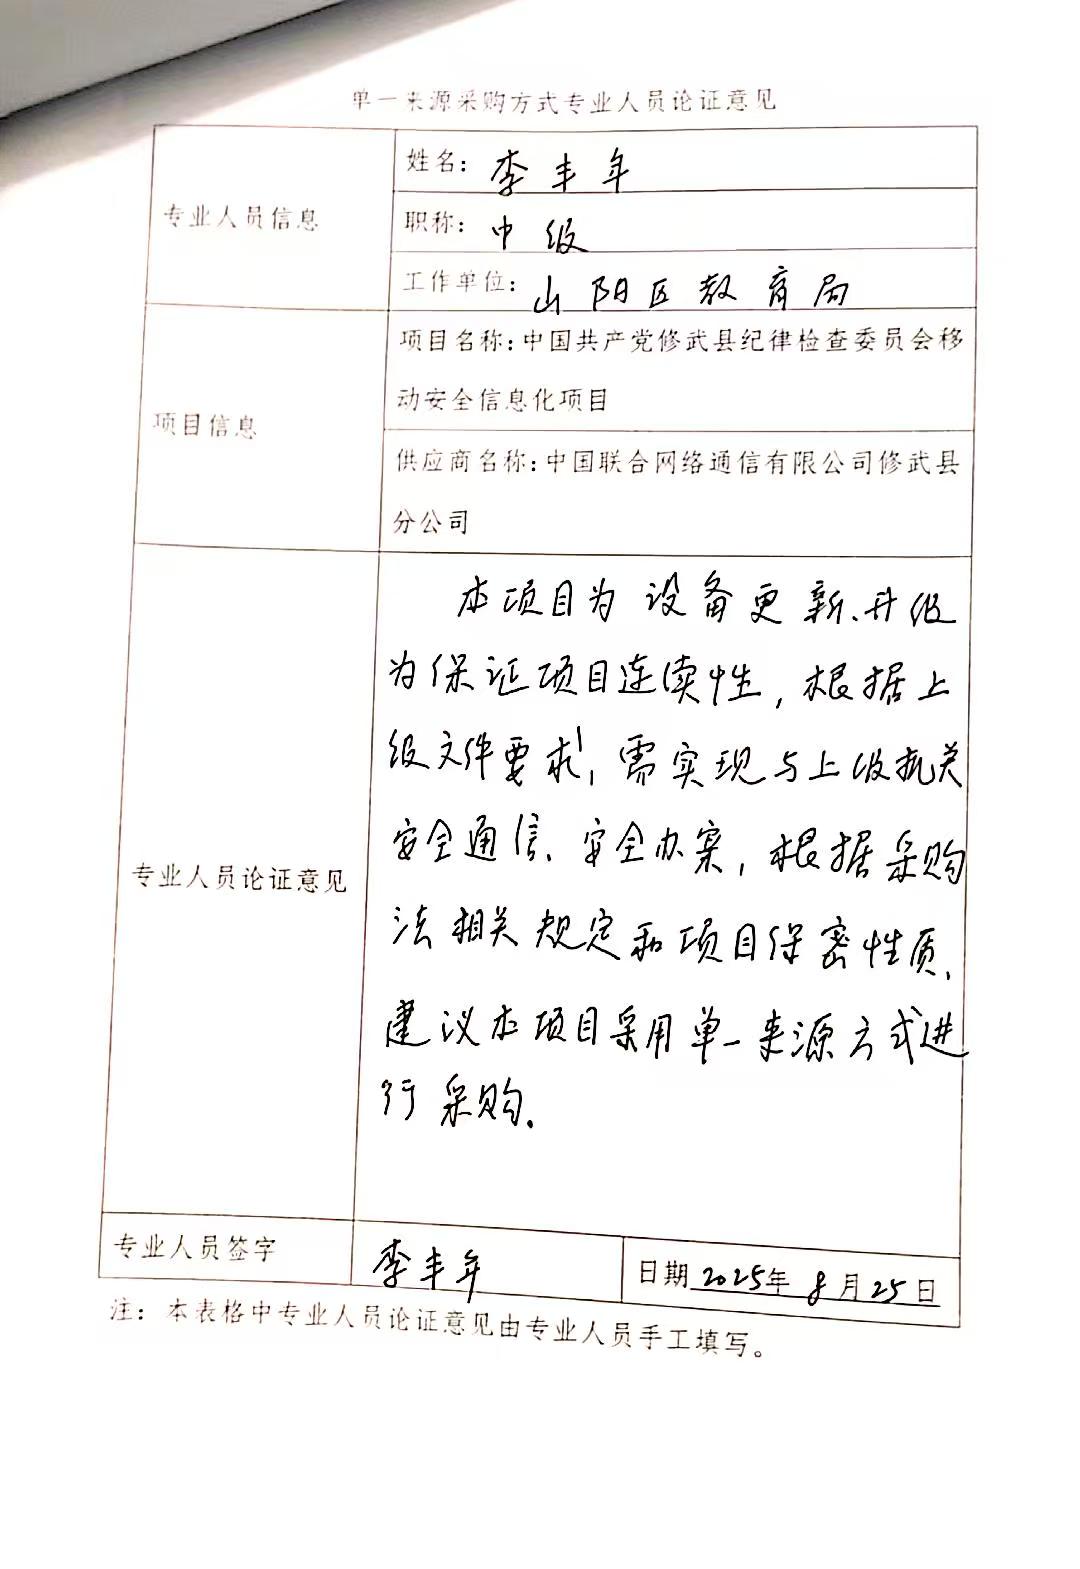 单一来源采购方式专业人员论证意见
专业人员信息
姓名：李丰年
职称：中级
工作单位：山阳区教育局
项目信息
项目名称：中国共产党修武县纪律检查委员会移
动安全信息化项目
供应商名称：中国联合网络通信有限公司修武县
分公司
专业人员论证意见
本项目为设备更新、升级
为保证项目连续性，根据上
级文件要求，需实现与上级机关
安全通信、安全办案，根据采购
法相关规定和项目保密性质，
建议本项目采用单一来源方式进
行采购.
专业人员签字
李丰年
日期 2025年 8月25日
注：本表格中专业人员论证意见由专业人员手工填写。